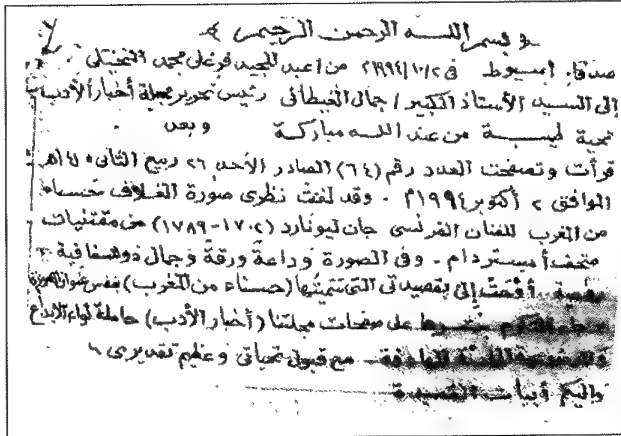 بسم اللـــه الرحمن الرحيم
صدفا. أسيوط في ٢/١٠/١٩٩٤ من / عبد المجيد فرغلى محمد النخيلى
إلى السيد الأستاذ الكبير / جمال الغيطانى رئيس تحرير مجلة أخبار الأدب
تحية طيبـــة من عند اللـه مباركـة وبعد
قرأت وتصفحت العدد رقم (٦٤) الصادر الأحد ٢٦ ربيع الثانى ١٤١٥هـ
الموافق ٢ أكتوبر ١٩٩٤م . وقد لفت نظرى صورة الغلاف حسناء
من المغرب للفنان الفرنسى جان ليونارد (١٧٠٢-١٧٨٩) من مقتنيات
متحف أمستردام . وفى الصورة وداعة ورقة وجمال ذو شفافية
أوحت إلى بقصيدتى التى سميتها (حسناء من المغرب) بنفس عنوان الصورة
على صفحات مجلتنا (أخبار الأدب) حاملة لواء الابداع
مع قبول تحياتى وعظيم تقديرى
وإليكم أبيات القصيدة